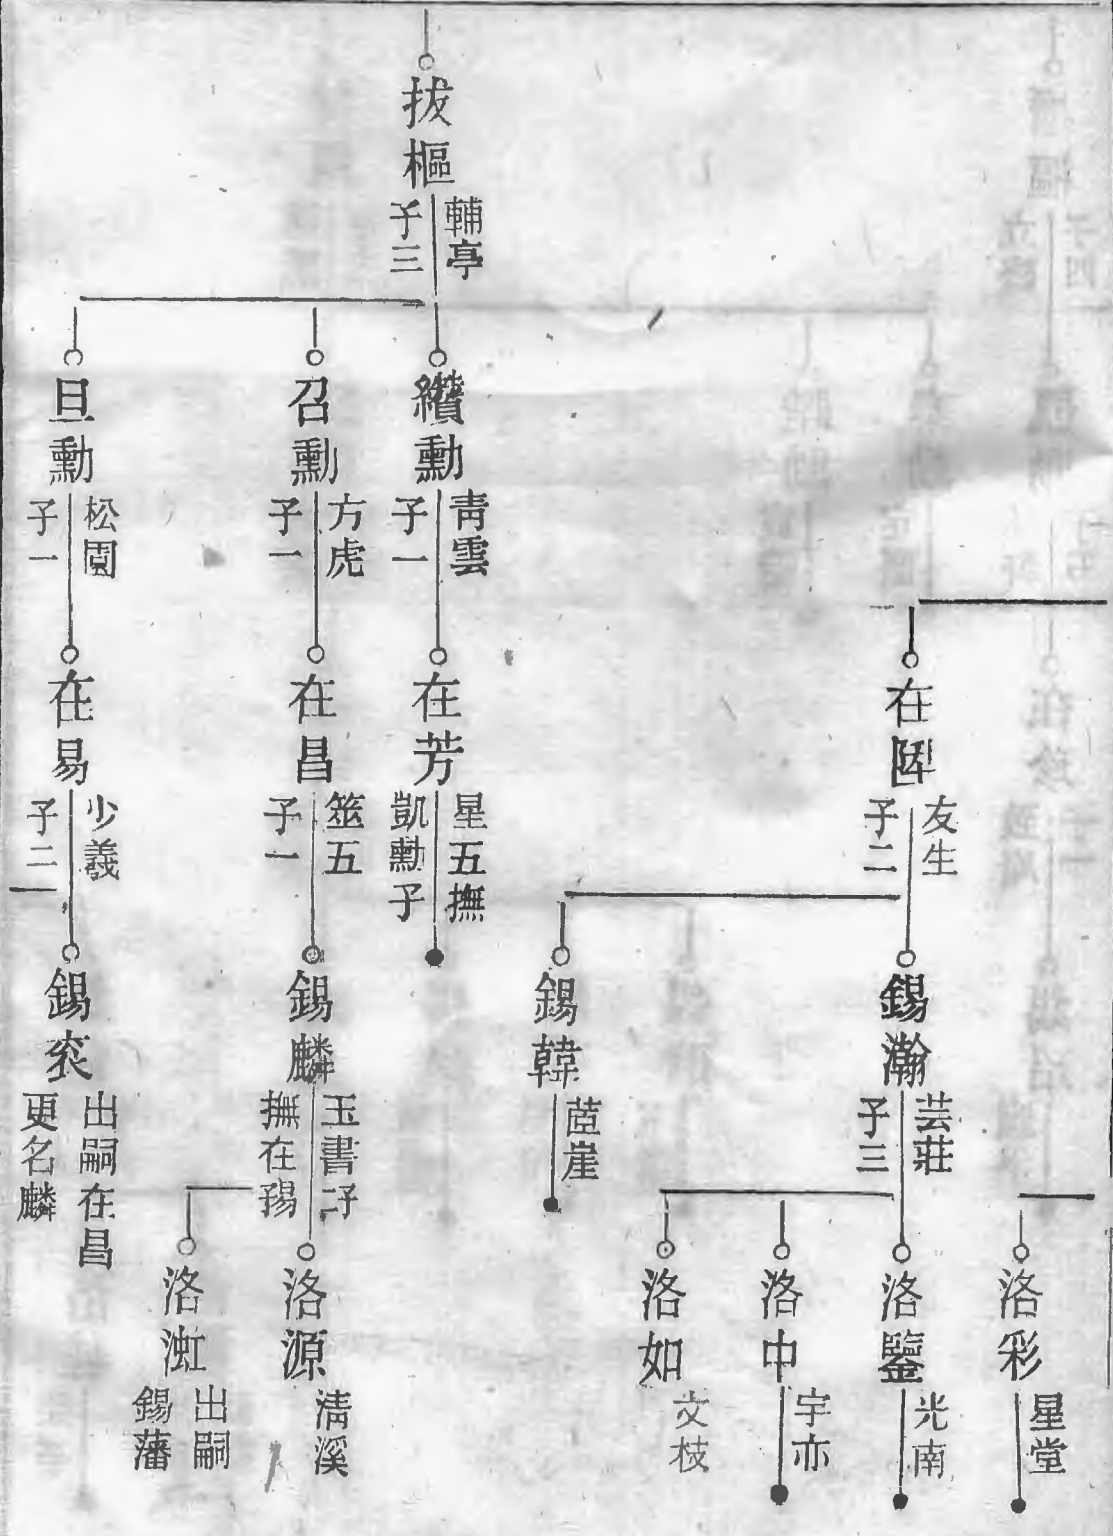 拔樞
輔亭
子三
纘勳
青雲
子一
召勳
方虎
子一
旦勳
松園
子一
在芳
星五撫
凱勳子
在昌
筮五
子一
在易
少羲
子二
友生
子二
錫瀚
芸莊
子三
錫韓
崖
錫麟
玉書子二
撫在
錫
出嗣在昌
更名麟
洛彩
星堂
洛鑒
光南
洛中
宇亦
洛如
文枝
洛源
清溪
洛
出嗣
錫藩